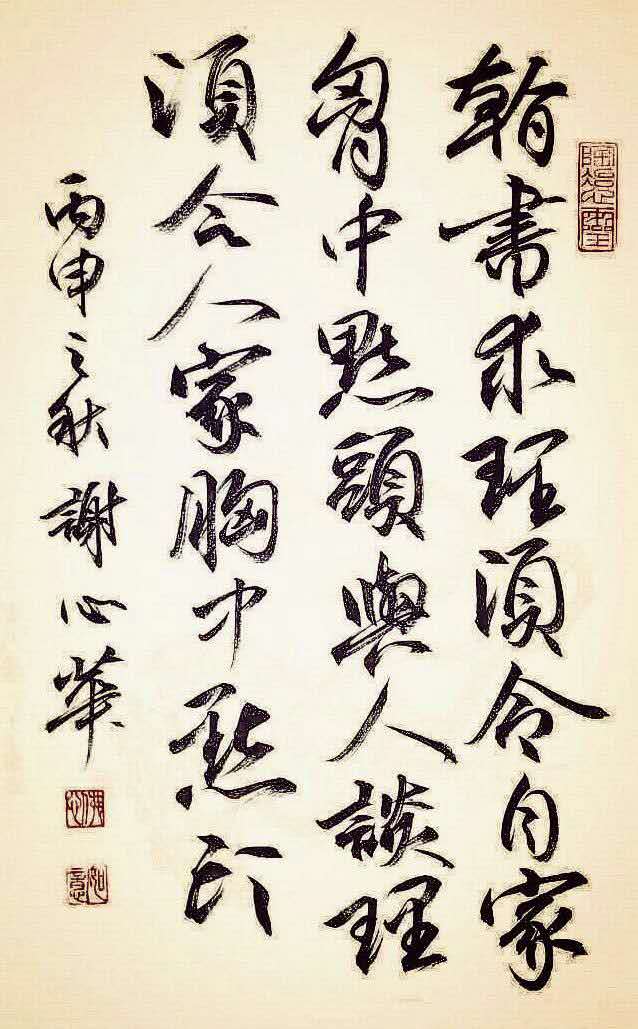 看書求理須令自家
胷中點頭與人談理
須令人家胸中點頭
丙申之秋謝心華